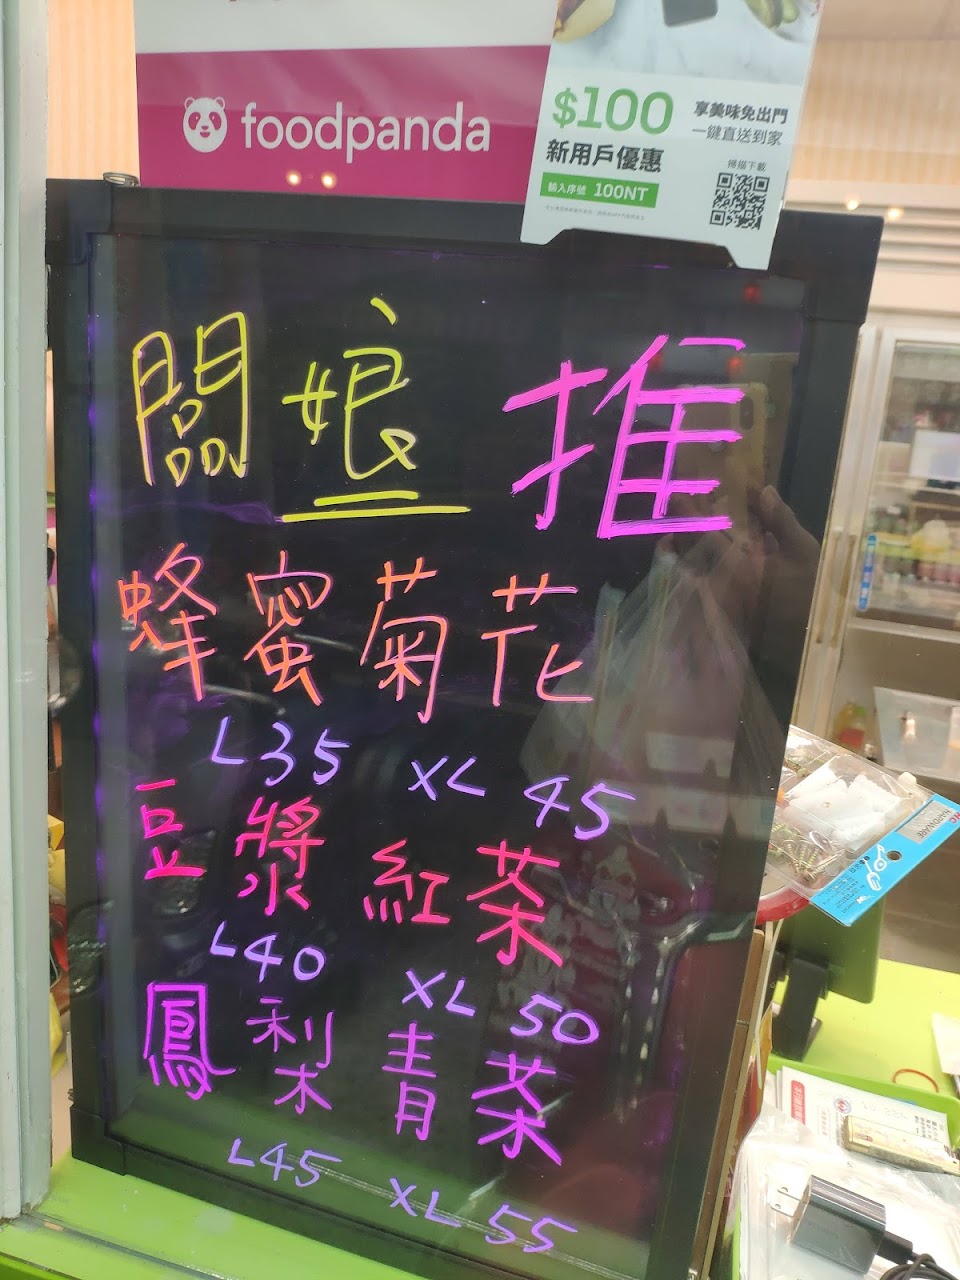 foodpanda
$100
新用戶優惠
輸入序號 100NT
享美味免出門
一鍵直送到家
掃描下載
闆娘 推
蜂蜜菊花
L35 XL 45
豆漿紅茶
L40 XL 50
鳳梨青茶
L45 XL 55
HARDWARE